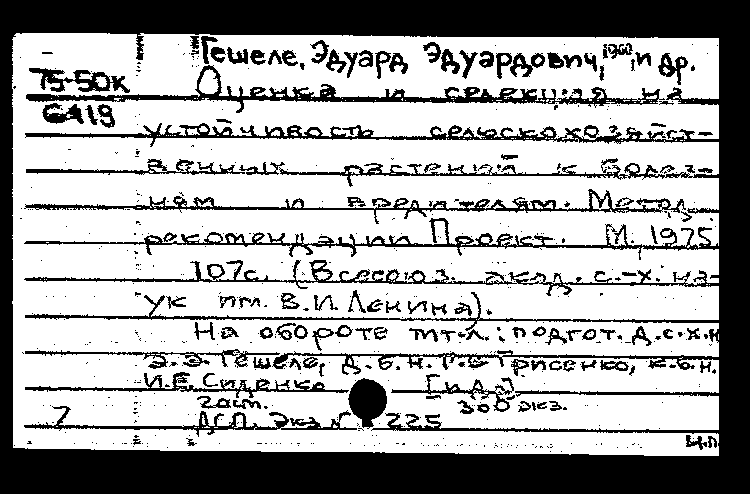 Гешеле, Эдуард Эдуардович, и др.
75-50к
6419
Оценка и селекция на
устойчивость сельскохозяйст-
венных растений к болез-
ням и вредителям. Метод.
рекомендации Проект. М., 1975.
107с. (Всесоюз. акад. с.-х. на-
ук им. В.И. Ленина).
На обороте тит.л.: подгот. д.с.х.н
Э.Э. Гешеле, д.б.н. Грисенко, к.б.н.
И.Е. Сиденко [и др.]
300 экз.
7 ДСП. Экз № 225